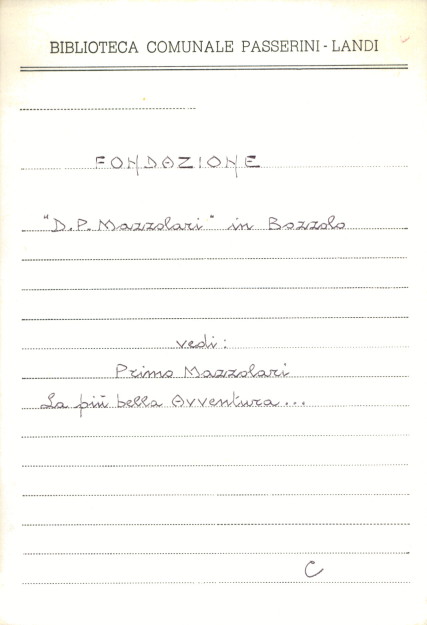 BIBLIOTECA COMUNALE PASSERINI - LANDI
FONDAZIONE
"D.P. Mazzolari" in Bozzolo
vedi:
Primo Mazzolari
La più bella Avventura...
C